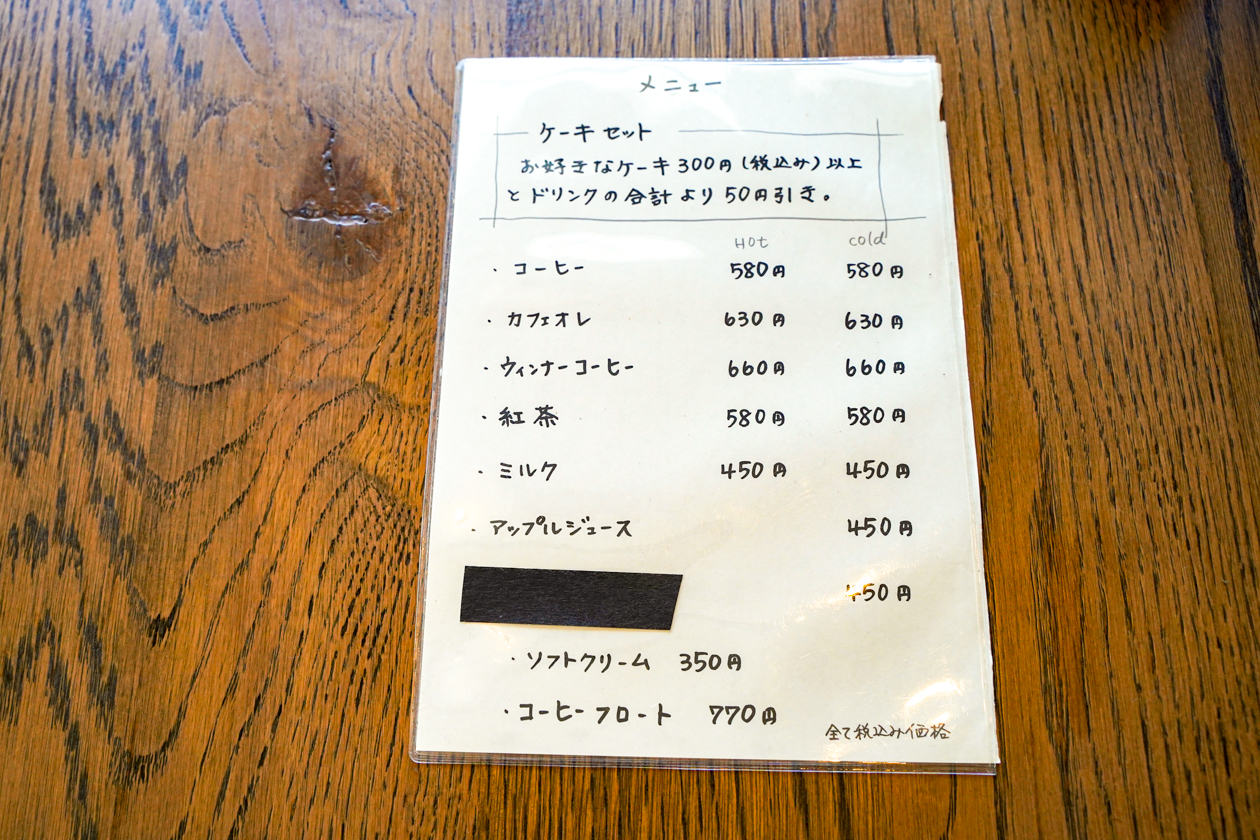 メニュー
ケーキセット
お好きなケーキ300円(税込み)以上
とドリンクの合計より50円引き。
Hot cold
・コーヒー 580円 580円
・カフェオレ 630円 630円
・ウィンナーコーヒー 660円 660円
・紅茶 580円 580円
・ミルク 450円 450円
・アップルジュース 450円
450円
・ソフトクリーム 350円
・コーヒーフロート 770円
全て税込み価格